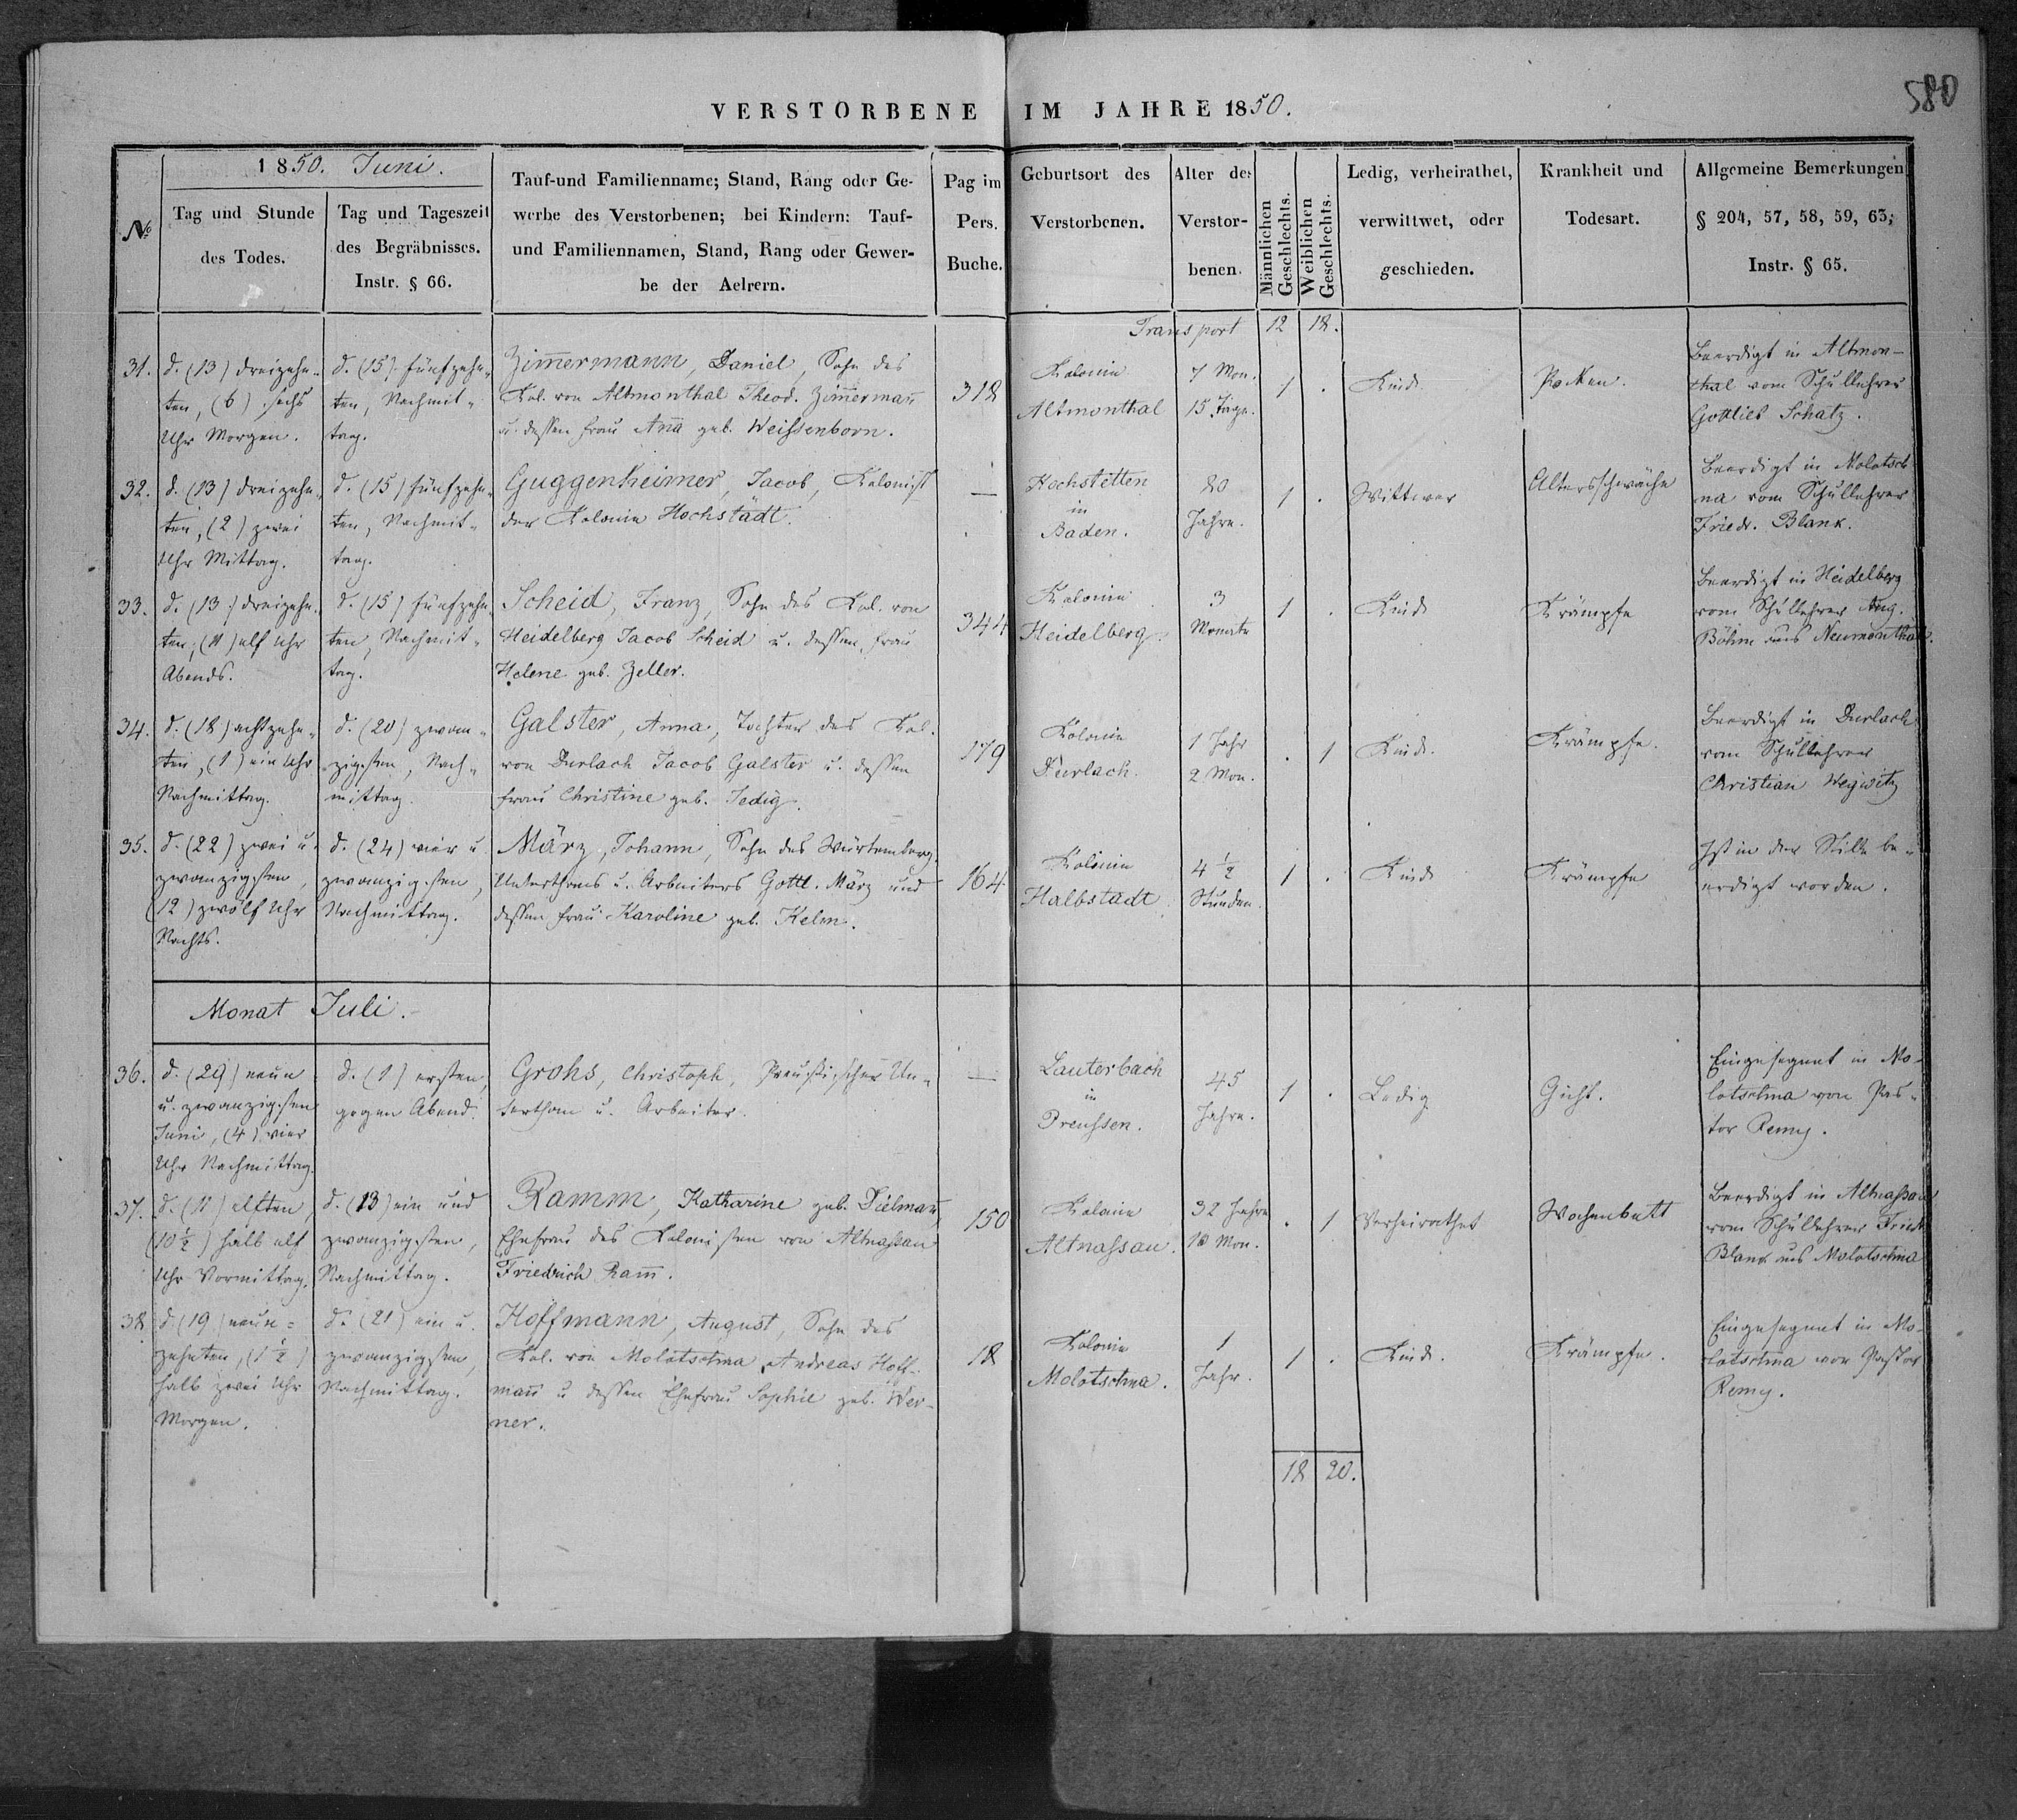 580
VERSTORBENE IM JAHRE 1850.
1850. Juni.
№
Tag und Stunde
des Todes.
Tag und Tageszeit
des Begräbnisses.
Instr. § 66.
Tauf-und Familienname; Stand, Rang oder Ge-
werbe des Verstorbenen; bei Kindern: Tauf-
und Familiennamen, Stand, Rang oder Gewer-
be der Aelrern.
Pag im
Pers.
Buche.
Geburtsort des
Verstorbenen.
Alter des
Verstor-
benen.
Männlichen
Geschlechts.
Weiblichen
Geschlechts.
Ledig, verheirathet,
verwittwet, oder
geschieden.
Krankheit und
Todesart.
Allgemeine Bemerkungen
§ 204, 57, 58, 59, 63,
Instr. § 65.
Transport 12 18.
31.
d. (13) dreizehn-
ten, (6) sechs
Uhr Morgen.
d. (15) fünfzehn-
ten, Nachmit-
tag.
Zim̅ermann, Daniel, Sohn des
Kol. von Altmonthal Theod. Zim̅erman̅
u. dessen Frau An̅a geb. Weissenborn.
318
Kolonie
Altmonthal
7 Mon.
15 Tage.
1 .
Kind.
Pocken.
Beerdigt in Altmon-
thal vom Schullehrer
Gottlieb Schatz.
32.
d. (13) dreizehn-
ten, (2) zwei
Uhr Mittag.
d. (15) fünfzehn-
ten, Nachmit-
tag.
Guggenheimer, Jacob, Kolonist
der Kolonie Hochstädt.
—
Hochstetten
in
Baden.
80
Jahre.
1 .
Wittwer
Altersschwäche
Beerdigt in Molotsch
na vom Schullehrer
Friedr. Blank.
33.
d. (13) dreizehn-
ten, (11) elf Uhr
Abends.
d. (15) fünfzehn-
ten, Nachmit-
tag.
Scheid, Franz, Sohn des Kol. von
Heidelberg Jacob Scheid u. dessen Frau
Helene geb. Zeller.
344
Kolonie
Heidelberg.
3
Monate
1 .
Kind
Krämpfe
Beerdigt in Heidelberg
vom Schullehrer Aug.
Böhm aus Neumonthal.
34.
d. (18) achtzehn-
ten, (1) ein Uhr
Nachmittag.
d. (20) zwan-
zigsten, Nach-
mittag.
Galster, Anna, Tochter des Kol.
von Durlach Jacob Galster u. dessen
Frau Christine geb. Jedig.
179
Kolonie
Durlach.
1 Jahr
2 Mon.
. 1
Kind.
Krämpfe.
Beerdigt in Durlach
vom Schullehrer
Christian Wegwitz
35.
d. (22) zwei u.
zwanzigsten,
(12) zwölf Uhr
Nachts.
d. (24) vier u.
zwanzigsten,
Nachmittag.
März, Johann, Sohn des Würtemberg.
Unterthans u. Arbeiters Gottl. März und
dessen Frau Karoline geb. Kelm.
164
Kolonie
Halbstadt.
4 ½
Stunden.
1 .
Kind
Krämpfe
Ist in der Stille be-
erdigt worden.
Monat Juli.
36.
d. (29) neun
u. zwanzigsten
Juni, (4) vier
Uhr Nachmittag.
d. (1) ersten,
gegen Abend.
Grohs, Christoph, Preussischer Un-
terthan u. Arbeiter.
—
Lauterbach
in
Preussen.
45
Jahre.
1 .
Ledig
Gicht.
Eingesegnet in Mo-
lotschna von Pas-
tor Remy.
37.
d. (11) elften,
(10½) halb elf
Uhr Vormittag.
d. (13) ein und
zwanzigsten,
Nachmittag.
Ramm, Katharine geb. Dielman̅,
Ehefrau des Kolonisten von Altnassau
Friedrich Ram̅.
150
Kolonie
Altnassau.
32 Jahre
10 Mon.
. 1
Verheirathet
Wochenbett
Beerdigt in Altnassau
vom Schullehrer Friedr.
Blank aus Molotschna
38.
d. (19) neun-
zehnten, (1½)
halb zwei Uhr
Morgen.
d. (21) ein u.
zwanzigsten,
Nachmittag.
Hoffmann, August, Sohn des
Kol. von Molotschna Andreas Hoff-
man̅ u. dessen Ehefrau Sophie geb. Wer-
ner.
18
Kolonie
Molotschna.
1
Jahr.
1 .
Kind.
Krämpfe.
Eingesegnet in Mo-
lotschna von Pastor
Remy.
18 20.